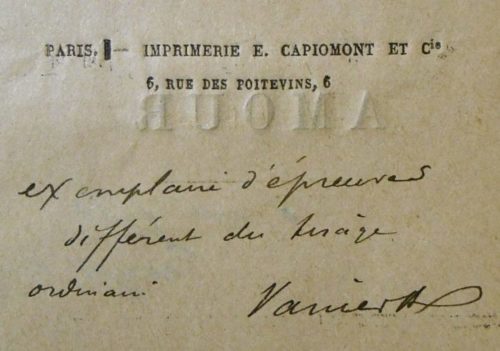 PARIS. — IMPRIMERIE E. CAPIOMONT ET Cie
6, RUE DES POITEVINS, 6
AMOUR
exemplaire d'épreuves
différent du tirage
ordinaire
Vanier